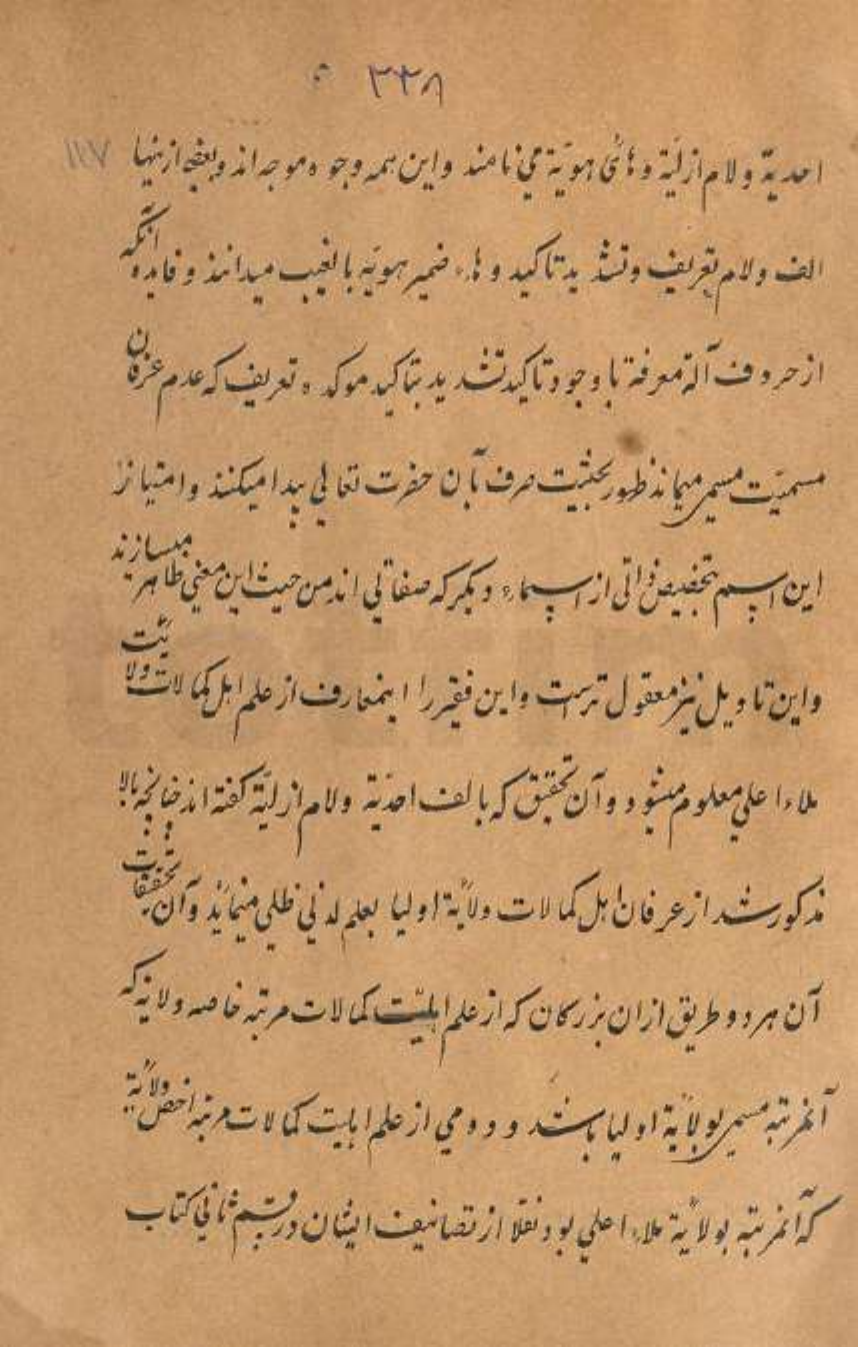 ٣٣٨
١١٧
احدیة ولام ازلیّة وهائ هویّة می نامند واین همه وجوه موجه اند وبعضی ازینها
الف ولام تعریف وتشدید تاکید وهاء ضمیر هویّه بالغیب میدانند وفایده آنکه
از حروف آلۀ معرفة با وجود تاکید تشدید بتاکید موکده تعریف که عدم عرفان
مسمیّت مسمی میماند ظهور بحثیت صرف بآن حضرت تعالی پیدا میکنند وامتیاز
این اسم بتخصیص ذاتی از اسماء دیگر که صفاتی اند من حیث این معنی ظاهر میسازند
واین تاویل نیز معقول تر است واین فقیر را اینمعارف از علم اهل کمالات ولایت
ملاء اعلی معلوم میشود وآن تحقیق که بالف احدّیة ولام ازلیّة گفته اند چنانچه بالا
مذکور شد از عرفان اهل کمالات ولایة اولیا بعلم لدنی ظلی مینماید وآن تحقیقات
آن هر دو طریق ازان بزرگان که از علم اهلیّت کمالات مرتبه خاصه ولایة که
آنمرتبه مسمی بولایة اولیا باشد ودومی از علم اهلیت کمالات مرتبه اخص ولایة
که آنمرتبه بولایة ملاء اعلی بود نقلا از تصانیف ایشان در قسم ثانی کتاب